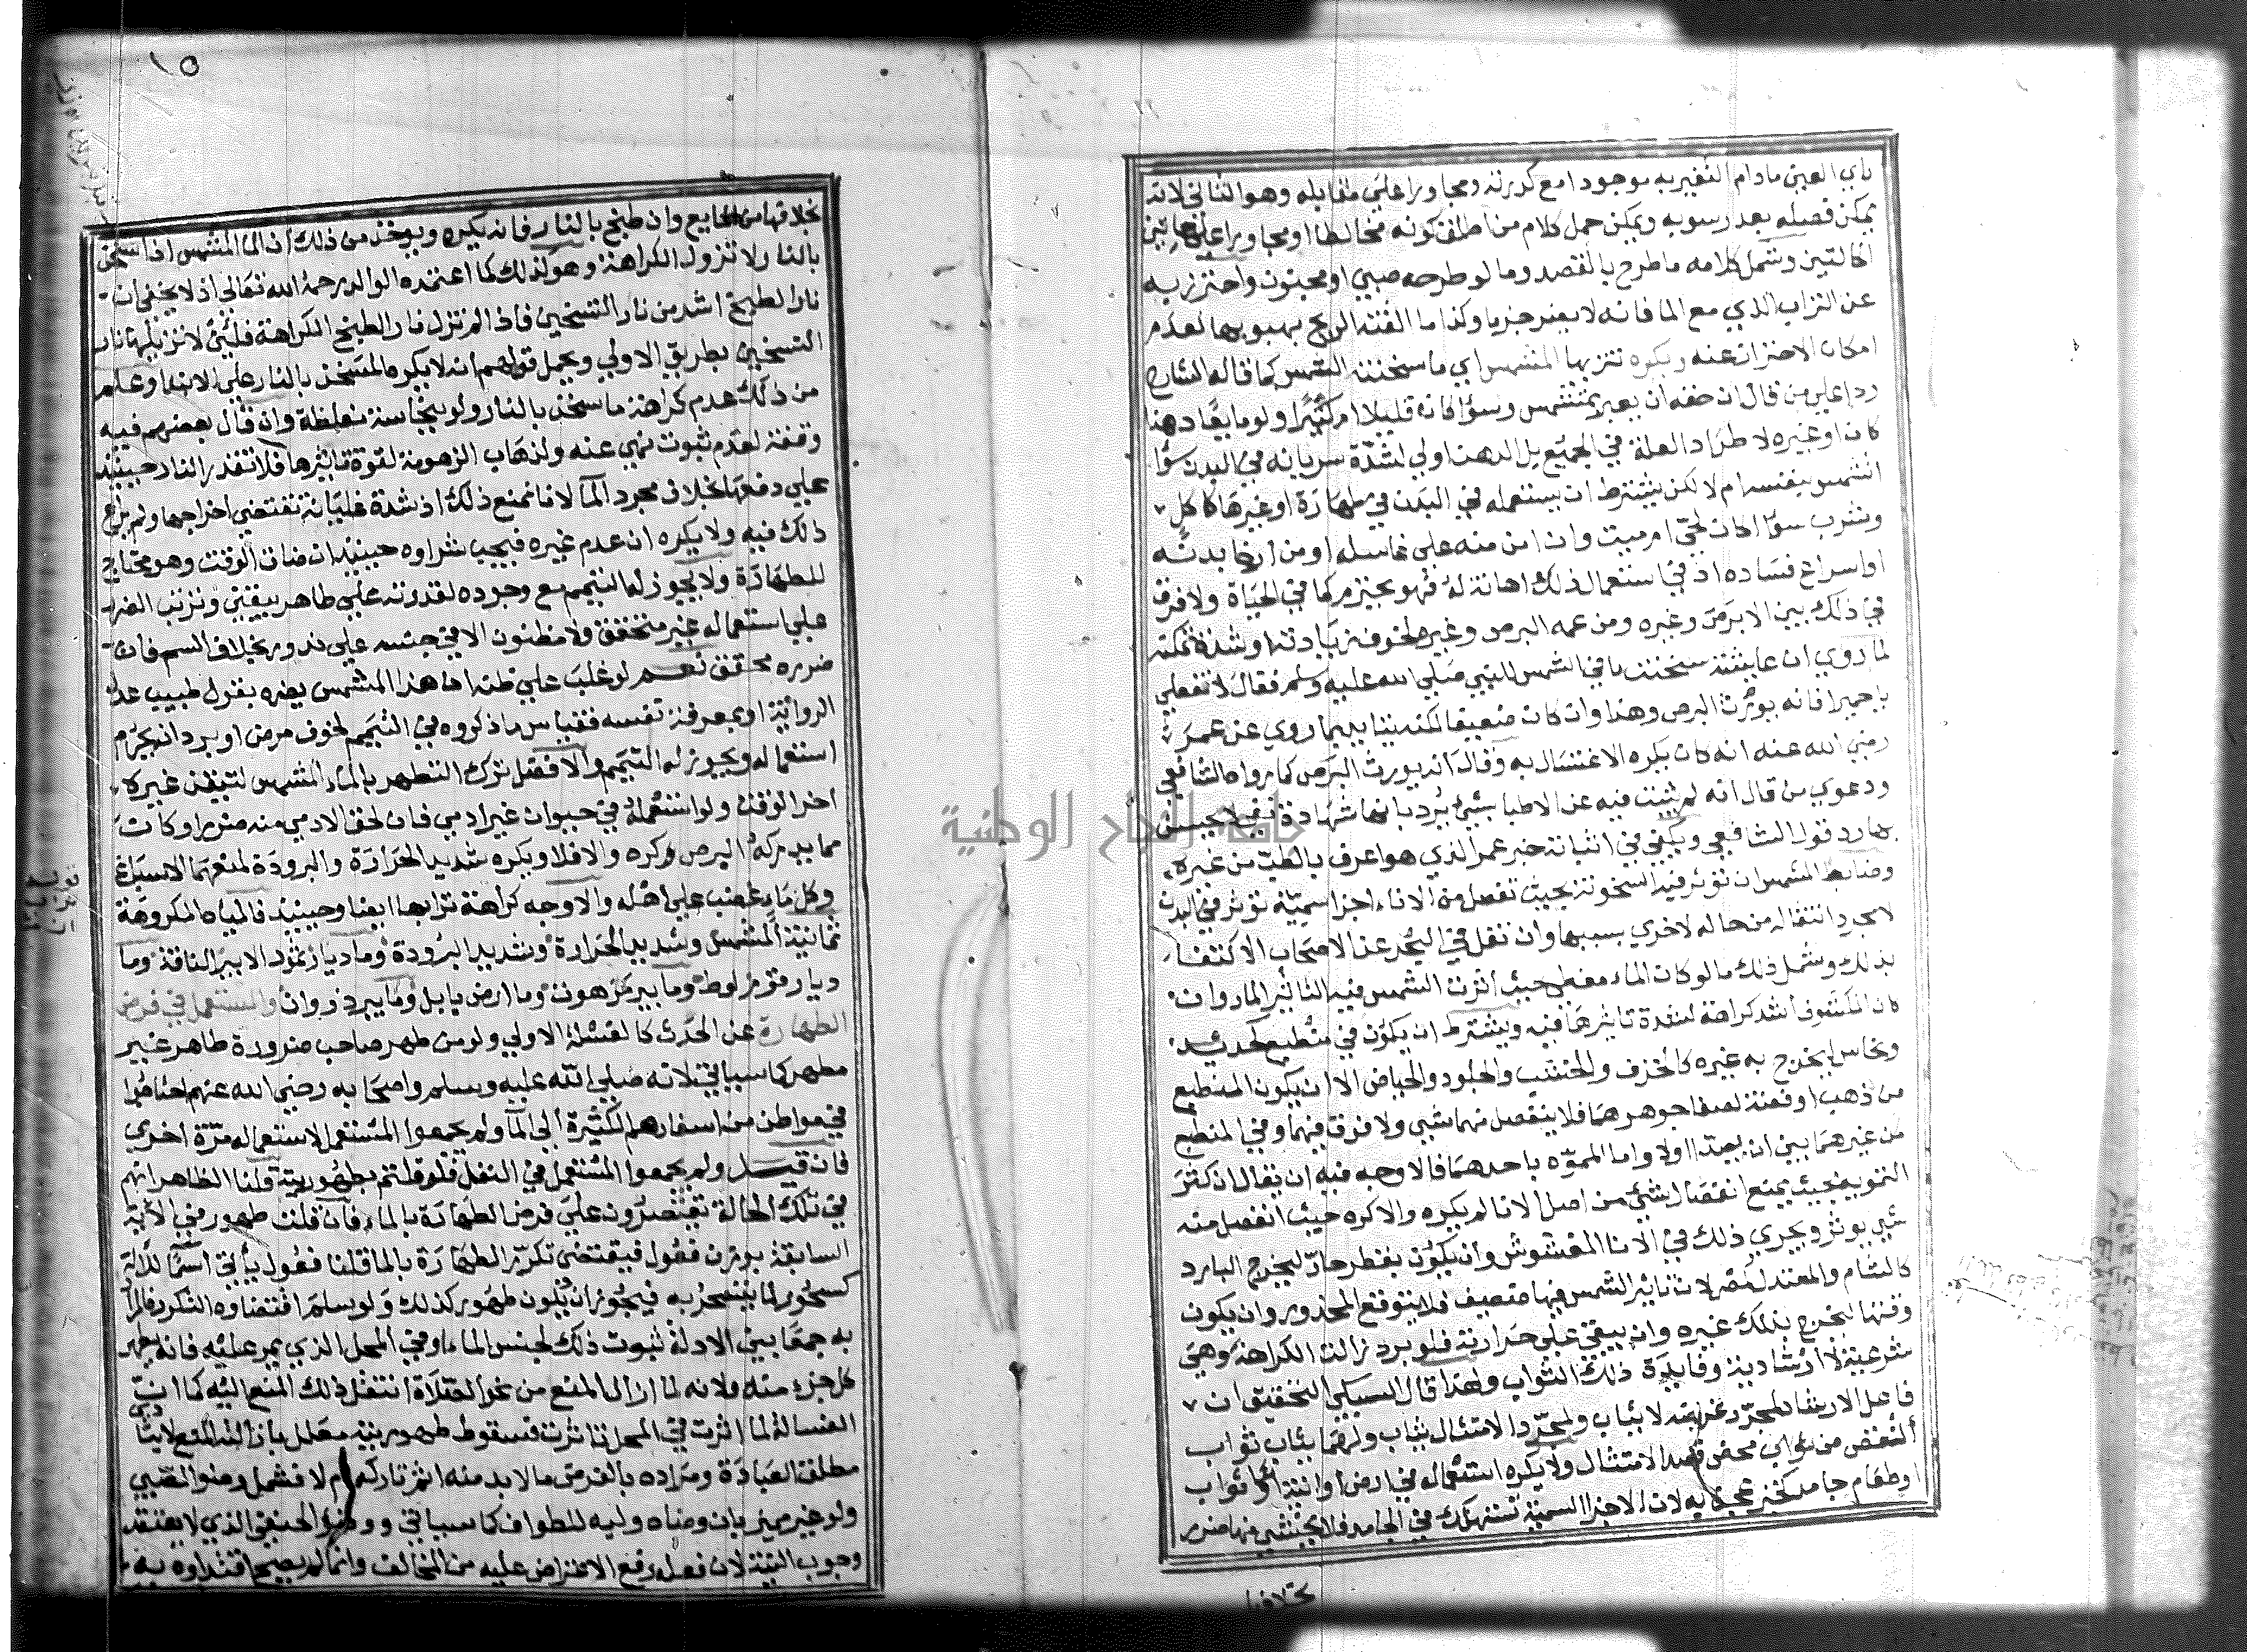 باي العين مادام التغير به موجودا مع كدرته ومجاورا علي مقابله وهو الثاني لانه
يمكن فصله بعد رسوبه ويمكن حمل كلام من اطلق كونه مخالطا او مجاورا علي
كالتين وشمل كلامه ما طرح بالقصد وما لو طرحه صبي او مجنون واحترز به
عن التراب الذي مع الما فانه لا يضر جزما وكذا ما القته الريح بهبوبها لعدم
امكان الاحتراز عنه ويكره تنزيها المشمس اي ما سخنته الشمس كما قاله الشارح
ردا علي من قال ان حقه ان يعبر بمتشمس وسوا كان قليلا ام كثيرا ولو مايعا دهنا
كان او غيره لاطراد العلة في الجميع بل الدهن اولي لشدة سريانه في البدن سوا
اتشمس بنفسه ام لا لكن يشترط ان يستعمله في البدن في طهارة او غيرها كاكل
وشرب سوا كان لحي ام ميت وان امن منه علي غاسله او من ارخا بدنه
او اسراع فساده اذ في استعمال ذلك اهانة له فهو محترم كما في الحياة ولا فرق
في ذلك بين الابرص وغيره ومن عمه البرص وغيره لخوف زيادته او شدة تمكنه
لما روي ان عايشة سخنت ما في الشمس للنبي صلي الله عليه وسلم فقال لا تفعلي
يا حميرا فانه يورث البرص وهذا وان كان ضعيفا لكنه يتايد بما روي عن عمر
رضي الله عنه انه كان يكره الاغتسال به وقال انه يورث البرص كما رواه الشافعي
ودعوي من قال انه لم يثبت فيه عن الاطبا شيئ يرد بانها شهادة نفي لا يحسن
بها رد قول الشافعي ويكفي في اثباته خبر عمر الذي هو اعرف بالطب من غيره
وضابط المشمس ان تؤثر فيه السخونة بحيث تفصل من الاناء اجزا سمية تؤثر في البدن
لا مجرد انتقاله من حاله لاخري بسببها وان نقل في البحر عن الاصحاب الاكتفا
بذلك وشمل ذلك ما لو كان الماء مغطي حيث اثرت الشمس فيه التاثير المار وان
كان المكشوف اشد كراهة لشدة تاثيرها فيه ويشترط ان يكون في منطبع كحديد
ونحاس ليخرج به غيره كالخزف والخشب والجلود والحياض الا ان يكون المنطبع
من ذهب او فضة لصفا جوهرهما فلا ينفصل منهما شيي ولا فرق فيهما وفي المنطبع
من غيرهما بين ان يصدا اولا واما المموه باحدهما فالاوجه فيه ان يقال ان كثر
التمويه بحيث يمنع انفصال شيئ من اصل الانا لم يكره والا كره حيث انفصل منه
شيي يوثر ويجري ذلك في الانا المغشوش وان يكون بقطر حار ليخرج البارد
كالشام والمعتدل كمصر لان تاثير الشمس فيها ضعيف فلا يتوقع المحذور وان يكون
وقتها ليخرج بذلك غيره وان يبقي علي حرارته فلو برد زالت الكراهة وهي
شرعية لا ارشادية وفايدة ذلك الثواب ولهذا قال السبكي التحقيق ان
فاعل الارشاد لمجرد غرضه لا يثاب ولمجرد الامتثال يثاب ولهما يثاب ثواب
انقص من ثواب محض قصد الامتثال ولا يكره استعماله في ارض او انية او ثواب
او طعام جامد كخبز عجن به لان الاجزا السمية تستهلك في الجامد فلا يخشي منها ضرر
بخلافها
١٥
بخلافها من المايع وان طبخ بالنار فانه يكره ويوخذ من ذلك ان الما المشمس اذا سخن
بالنار لا تزول الكراهة وهو كذلك كما اعتمده الوالد رحمه الله تعالي اذ لا يخفي ان
نار الطبخ اشد من نار التسخين فاذا لم تزل نار الطبخ الكراهة فلئن لا تزيلها نار
التسخين بطريق الاولي ويحمل قولهم انه لا يكره المسخن بالنار علي الابتدا وعلم
من ذلك عدم كراهة ما سخن بالنار ولو بنجاسة مغلظة وان قال بعضهم فيه
وقفة لعدم ثبوت نهي عنه ولذهاب الزهومة لقوة تاثيرها فلا تقدر النار حينيذ
علي دفعها بخلاف مجرد الما لانا نمنع ذلك اذ شدة غليانه تقتضي اخراجها ولم يلح
ذلك فيه ولا يكره ان عدم غيره فيجب شراوه حينيذ ان ضاق الوقت وهو محتاج
للطهارة ولا يجوز له التيمم مع وجوده لقدرته علي طاهر بيقين وترتب الضرر
علي استعماله غير متحقق ولا مظنون الا في جنسه علي ندور بخلاف السم فان
ضرره محقق نعم لو غلب علي ظنه ان هذا المشمس يضره بقول طبيب عدل
الرواية او بمعرفة نفسه فقياس ما ذكروه في التيمم لخوف مرض او برد انه يحرم
استعماله ويجوز له التيمم والافضل ترك التطهر بالماء المشمس لتيقن غيره
اخر الوقت ولو استعمله في حيوان غير ادمي فان لحق الادمي منه ضرر او كان
مما يدركه البرص كره والا فلا ويكره شديد الحرارة والبرودة لمنعهما الاسباغ
وكل ماء غضب علي اهله والاوجه كراهة ترابها ايضا وحينيذ فالمياه المكروهة
ثمانية المشمس وشديد الحرارة وشديد البرودة وما ديار ثمود الا بير الناقة وما
ديار قوم لوط وما بير برهوت وما ارض بابل وما بير ذروان والمستعمل في فرض
الطهارة عن الحدث كالغسلة الاولي ولو من طهر صاحب ضرورة طاهر غير
مطهر كما سياتي لانه صلي الله عليه وسلم واصحابه رضي الله عنهم احتاجوا
في مواطن من اسفارهم الكثيرة الي الما ولم يجمعوا المستعمل لاستعماله مرة اخري
فان قيل ولم يجمعوا المستعمل في النفل فلو قلتم بطهوريته قلنا الظاهر انهم
في تلك الحالة يقتصرون علي فرض الطهارة بالماء فان قلت طهور في الاية
السابقة بوزن فعول فيقتضي تكرر الطهارة بالما قلنا فعول يأتي اسما للالة
كسحور لما يتسحر به فيجوز ان يكون طهور كذلك ولو سلم اقتضاوه التكرر فالمراد
به جمعا بين الادلة ثبوت ذلك لجنس الماء او في المحل الذي يمر عليه فانه يطهر
كل جزء منه ولانه لما ازال المنع من نحو الصلاة انتقل ذلك المنع اليه كما ان
الغسالة لما اثرت في المحل تاثرت فسقوط طهوريته معلل بازالته المنع لا بتادي
مطلق العبادة ومراده بالفرض ما لا بد منه اثم تاركه ام لا فشمل وضوا الصبي
ولو غير مميز بان وضاه وليه للطواف كما سياتي ووضوء الحنفي الذي لا يعتقد
وجوب النية لان فعله رفع الاعتراض عليه من المخالف وانما لم يصح اقتداوه به
جامعة النجاح الوطنية